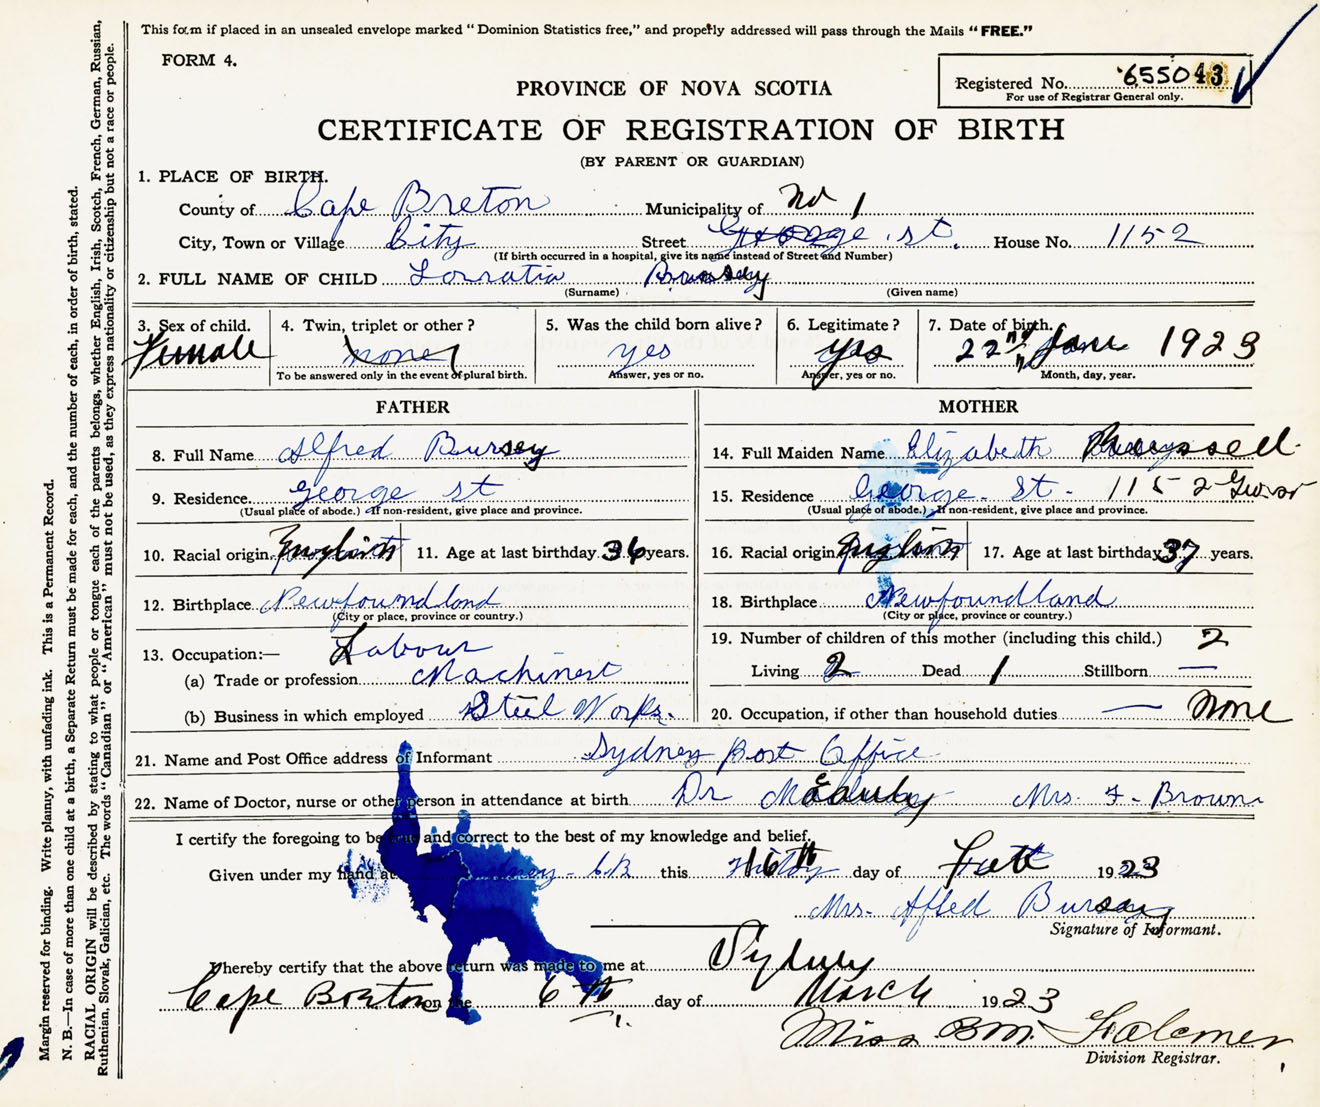 This form if placed in an unsealed envelope marked "Dominion Statistics free," and properly addressed will pass through the Mails "FREE."
FORM 4.
Registered No. 655043
For use of Registrar General only.
PROVINCE OF NOVA SCOTIA
CERTIFICATE OF REGISTRATION OF BIRTH
(BY PARENT OR GUARDIAN)
1. PLACE OF BIRTH.
County of Cape Breton Municipality of No 1
City, Town or Village City Street George st. House No. 1152
(If birth occurred in a hospital, give its name instead of Street and Number)
2. FULL NAME OF CHILD Lorratia Bursey
(Surname) (Given name)
3. Sex of child. 4. Twin, triplet or other? 5. Was the child born alive? 6. Legitimate? 7. Date of birth.
Female none yes yes 22nd 1923
To be answered only in the event of plural birth. Answer, yes or no. Answer, yes or no. Month, day, year.
FATHER MOTHER
8. Full Name Alfred Bursey
14. Full Maiden Name Elizabeth
9. Residence George st
(Usual place of abode.) If non-resident, give place and province.
15. Residence George. St. 1152
(Usual place of abode.) If non-resident, give place and province.
10. Racial origin English 11. Age at last birthday 36 years.
16. Racial origin English 17. Age at last birthday 37 years.
12. Birthplace Newfoundland
(City or place, province or country.)
18. Birthplace Newfoundland
(City or place, province or country.)
13. Occupation:— Labour
(a) Trade or profession Machinest
(b) Business in which employed Steel Works.
19. Number of children of this mother (including this child.) 2
Living 2 Dead 1 Stillborn —
20. Occupation, if other than household duties — None
21. Name and Post Office address of Informant Sydney Post Office
22. Name of Doctor, nurse or other person in attendance at birth Dr Mrs. F. Brown
I certify the foregoing to be true and correct to the best of my knowledge and belief.
Given under my hand at Sydney - C.B this 16th day of 1923
Mrs. Alfled Bursey
Signature of Informant.
I hereby certify that the above return was made to me at Sydney
Cape Breton on the 6th day of March 1923
Miss B.M. Falconer
Division Registrar.
Margin reserved for binding. Write plainly, with unfading ink. This is a Permanent Record.
N. B.—In case of more than one child at a birth, a Separate Return must be made for each, and the number of each, in order of birth, stated.
RACIAL ORIGIN will be described by stating to what people or tongue each of the parents belongs, whether English, Irish, Scotch, French, German, Russian,
Ruthenian, Slovak, Galician, etc. The words "Canadian" or "American" must not be used, as they express nationality or citizenship but not a race or people.